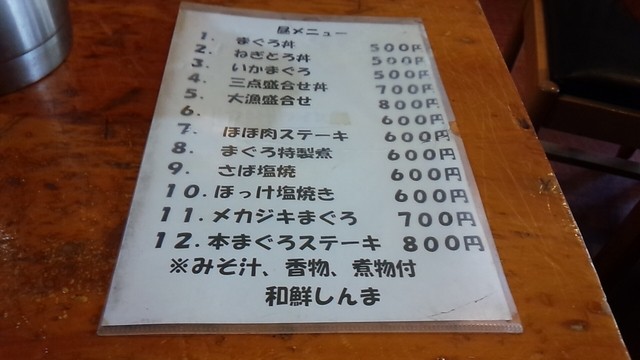 昼メニュー
1. まぐろ丼 500円
2. ねぎとろ丼 500円
3. いかまぐろ 500円
4. 三点盛合せ丼 700円
5. 大漁盛合せ 800円
6. 600円
7. ほほ肉ステーキ 600円
8. まぐろ特製煮 600円
9. さば塩焼 600円
10. ほっけ塩焼き 600円
11. メカジキまぐろ 700円
12. 本まぐろステーキ 800円
※みそ汁、香物、煮物付
和鮮しんま